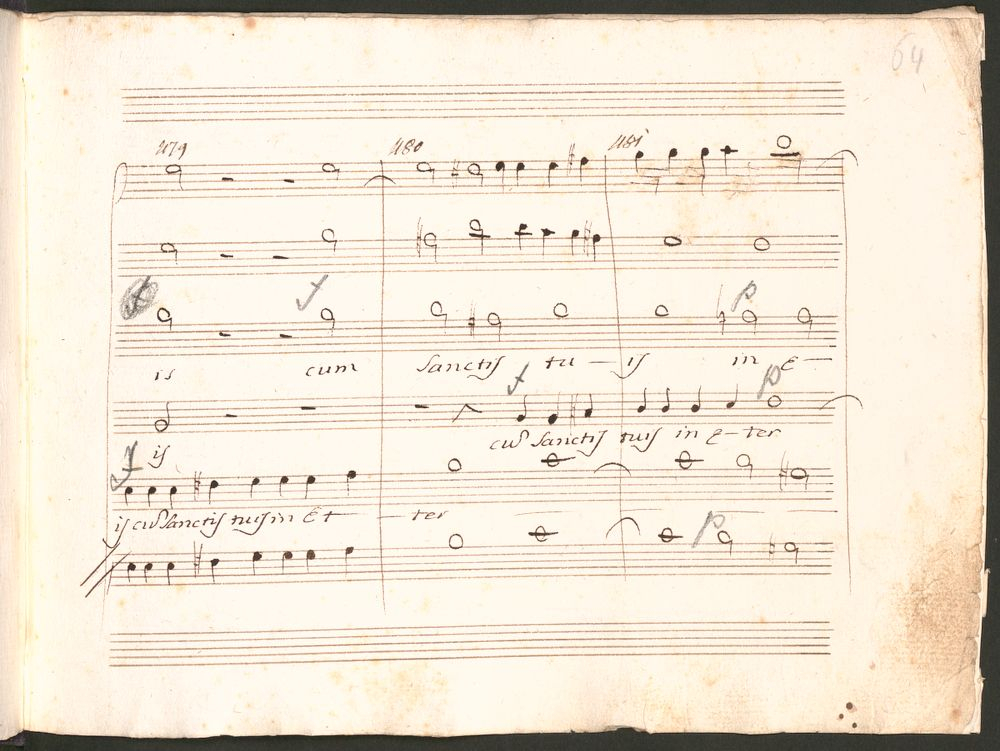 64
479 480 481
f f p
is cum Sanctis tu - is in E -
f p
is cū Sanctis tuis in E - ter
f
is cū Sanctis tuis in Et - ter
p